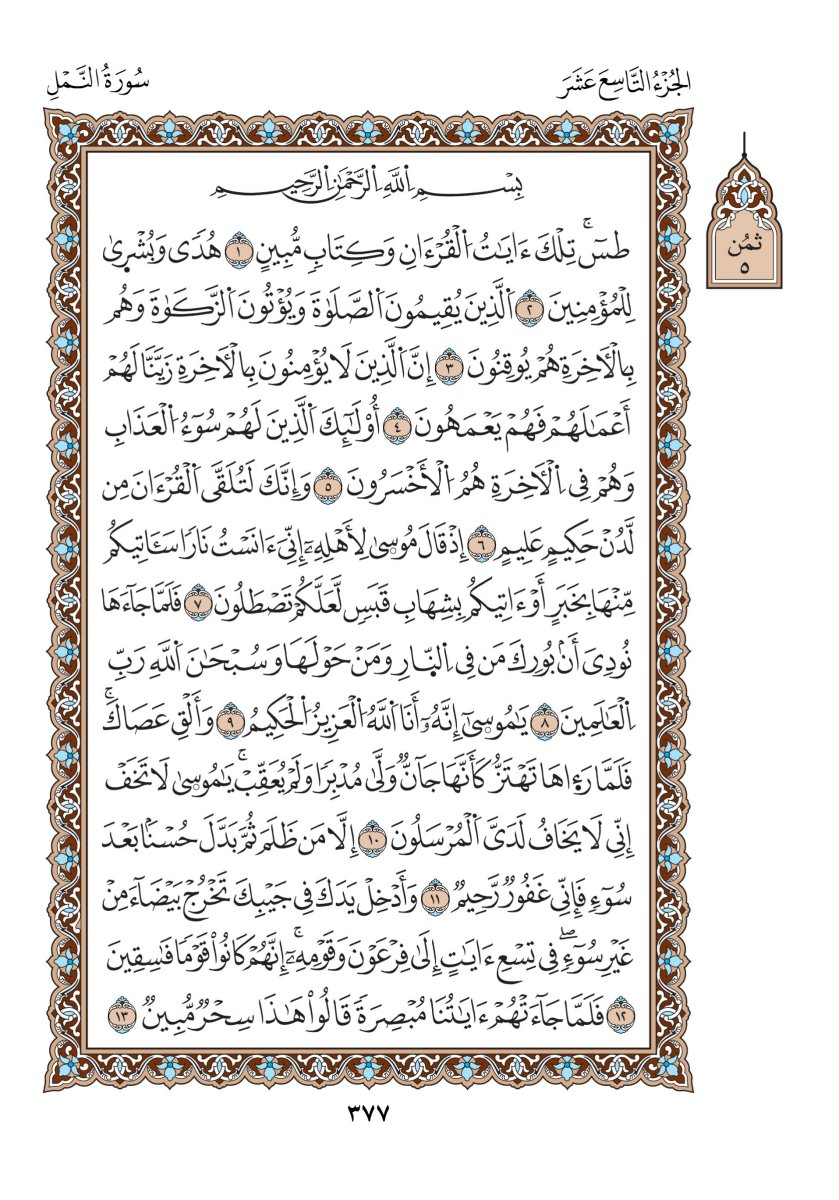 الجُزْءُ التَّاسِعَ عَشَرَ
سُورَةُ النَّمْلِ
ثمُن
٥
بِسْمِ اِ۬للَّهِ اِ۬لرَّحْمَٰنِ اِ۬لرَّحِيمِ
طسٓۚ تِلْكَ ءَايَٰتُ اُ۬لْقُرْءَانِ وَكِتَابٖ مُّبِينٍ ١ هُدٗى وَبُشْر۪ىٰ
لِلْمُؤْمِنِينَ ٢ اَ۬لَّذِينَ يُقِيمُونَ اَ۬لصَّلَوٰةَ وَيُؤْتُونَ اَ۬لزَّكَوٰةَ وَهُم
بِالْأٓخِرَةِ هُمْ يُوقِنُونَ ٣ إِنَّ اَ۬لَّذِينَ لَا يُؤْمِنُونَ بِالْأٓخِرَةِ زَيَّنَّا لَهُمْ
أَعْمَٰلَهُمْ فَهُمْ يَعْمَهُونَ ٤ أُوْلَٰٓئِكَ اَ۬لَّذِينَ لَهُمْ سُوٓءُ اُ۬لْعَذَابِ
وَهُمْ فِي اِ۬لْأٓخِرَةِ هُمُ اُ۬لْأَخْسَرُونَ ٥ وَإِنَّكَ لَتُلَقَّى اَ۬لْقُرْءَانَ مِن
لَّدُنْ حَكِيمٍ عَلِيمٍ ٦ إِذْ قَالَ مُوس۪ىٰ لِأَهْلِهِۦٓ إِنِّيَ ءَانَسْتُ نَارٗا سَـَٔاتِيكُم
مِّنْهَا بِخَبَرٍ أَوْ ءَاتِيكُم بِشِهَابِ قَبَسٖ لَّعَلَّكُمْ تَصْطَلُونَ ٧ فَلَمَّا جَآءَهَا
نُودِيَ أَنۢ بُورِكَ مَن فِي اِ۬لنّ۪ارِ وَمَنْ حَوْلَهَا وَسُبْحَٰنَ اَ۬للَّهِ رَبِّ
اِ۬لْعَٰلَمِينَ ٨ يَٰمُوس۪ىٰٓ إِنَّهُۥٓ أَنَا اَ۬للَّهُ اُ۬لْعَزِيزُ اُ۬لْحَكِيمُ ٩ وَأَلْقِ عَصَاكَۚ
فَلَمَّا رَء۪اهَا تَهْتَزُّ كَأَنَّهَا جَآنّٞ وَلَّىٰ مُدْبِرٗا وَلَمْ يُعَقِّبْۚ يَٰمُوس۪ىٰ لَا تَخَفْ
إِنِّي لَا يَخَافُ لَدَيَّ اَ۬لْمُرْسَلُونَ ١٠ إِلَّا مَن ظَلَمَ ثُمَّ بَدَّلَ حُسْنَۢا بَعْدَ
سُوٓءٖ فَإِنِّي غَفُورٞ رَّحِيمٞ ١١ وَأَدْخِلْ يَدَكَ فِي جَيْبِكَ تَخْرُجْ بَيْضَآءَ مِنْ
غَيْرِ سُوٓءٖۖ فِي تِسْعِ ءَايَٰتٍ إِلَىٰ فِرْعَوْنَ وَقَوْمِهِۦٓۚ إِنَّهُمْ كَانُواْ قَوْمٗا فَٰسِقِينَ
١٢ فَلَمَّا جَآءَتْهُمْ ءَايَٰتُنَا مُبْصِرَةٗ قَالُواْ هَٰذَا سِحْرٞ مُّبِينٞ ١٣
٣٧٧